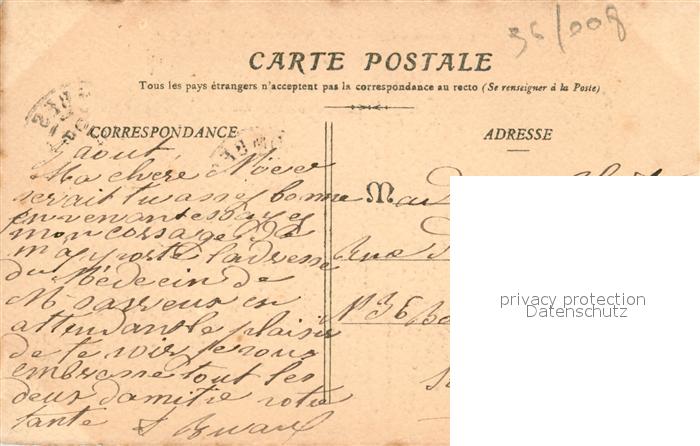 36/008
CARTE POSTALE
Tous les pays étrangers n'acceptent pas la correspondance au recto (Se renseigner à la Poste)
CORRESPONDANCE
ADRESSE
aout
Ma chere Noee
serait tu assez bonne
en venant essayer
mon corsage de
m'apporté l'adresse
du Médecin de
M
attendant le plaisir
de te voir je vous
embrasse tout les
deux d'amitié votre
tante
M
Rue
N 36
privacy protection
Datenschutz